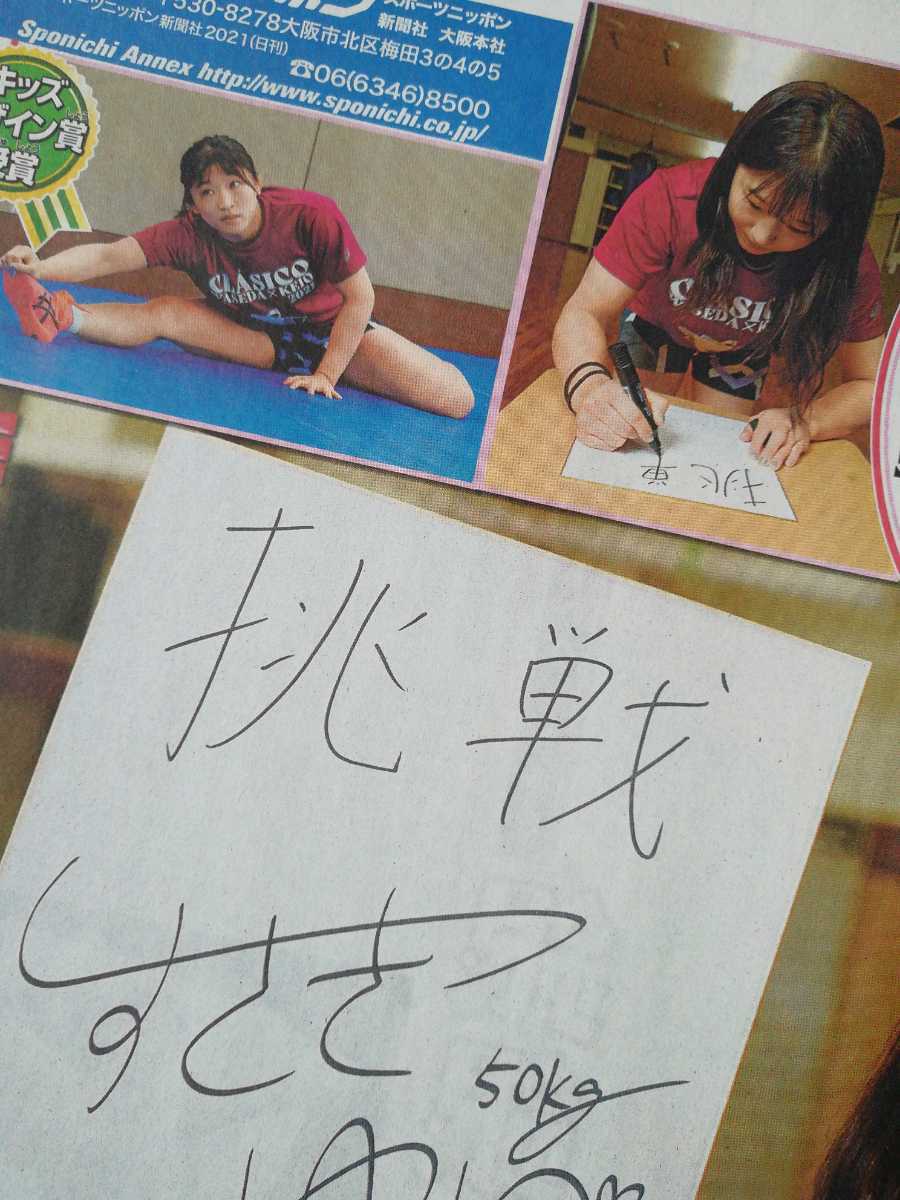 スポーツニッポン
新聞社 大阪本社
530-8278大阪市北区梅田3の4の5
ポーツニッポン新聞社2021(日刊)
☎06(6346)8500
Sponichi Annex http://www.sponichi.co.jp/
キッズ
ザイン賞
しょう
受賞
じゅ しょう
CLASICO
WASEDA×KEIO
2021
CLASIC
挑単
挑戦
すさき
50kg